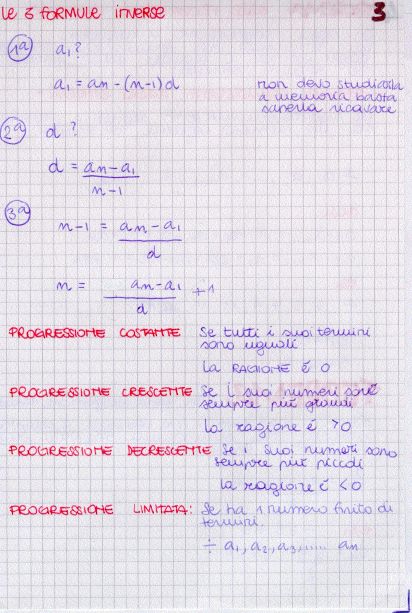 le 3 formule inverse
3
1ª a₁?
a₁ = an - (n-1) d
non devo studiarla
a memoria basta
saperla ricavare
2ª d?
d = an - a₁ / n-1
3ª
n-1 = an - a₁ / d
n = an - a₁ / d + 1
PROGRESSIONE COSTANTE Se tutti i suoi termini
sono uguali
la RAGIONE è 0
PROGRESSIONE CRESCENTE Se i suoi numeri sono
sempre più grandi
la ragione è >0
PROGRESSIONE DECRESCENTE Se i suoi numeri sono
sempre più piccoli
la ragione è <0
PROGRESSIONE LIMITATA: Se ha 1 numero finito di
termini.
÷ a₁, a₂, a₃, ..... an